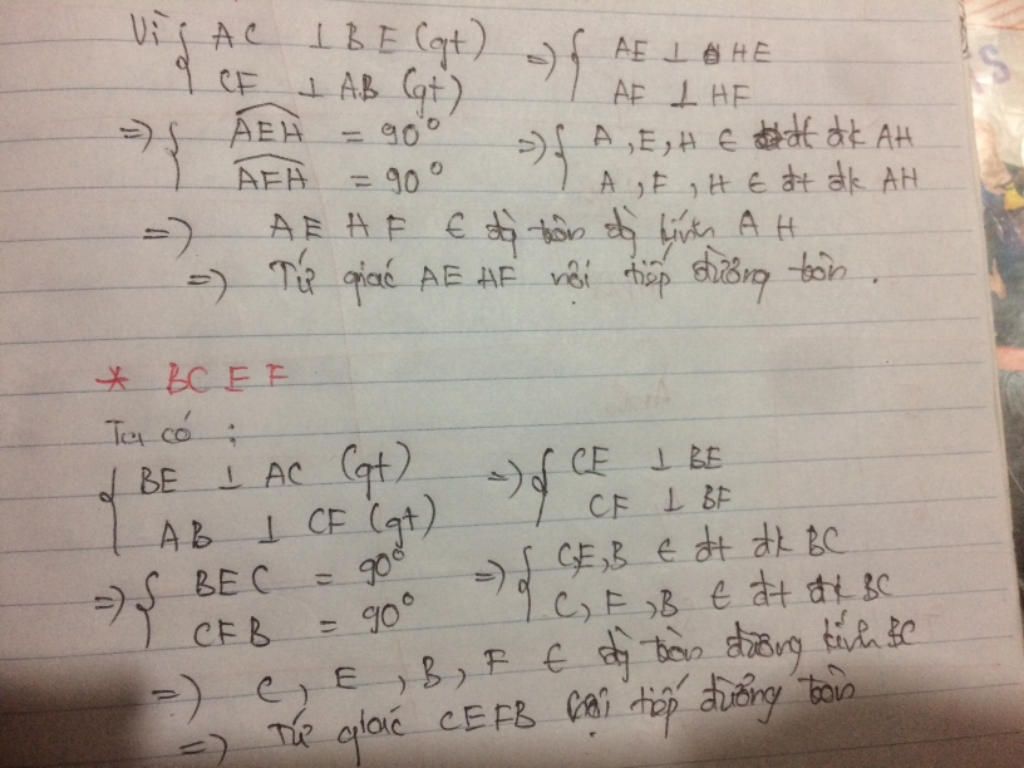 Vì { AC ⊥ BE (gt) => { AE ⊥ HE
CF ⊥ AB (gt) AF ⊥ HF
=> { AEH = 90° => { A, E, H ∈ đt đk AH
AFH = 90° A, F, H ∈ đt đk AH
=> A E H F ∈ đg tròn đg kính A H
=> Tứ giác AE HF nội tiếp đường tròn.
* BC E F
Ta có :
{ BE ⊥ AC (gt) => { CE ⊥ BE
AB ⊥ CF (gt) CF ⊥ BF
=> { BEC = 90° => { C,E,B ∈ đt đk BC
CFB = 90° C, F, B ∈ đt đk BC
=> C, E, B, F ∈ đg tròn đường kính BC
=> Tứ giác CEFB nội tiếp đường tròn